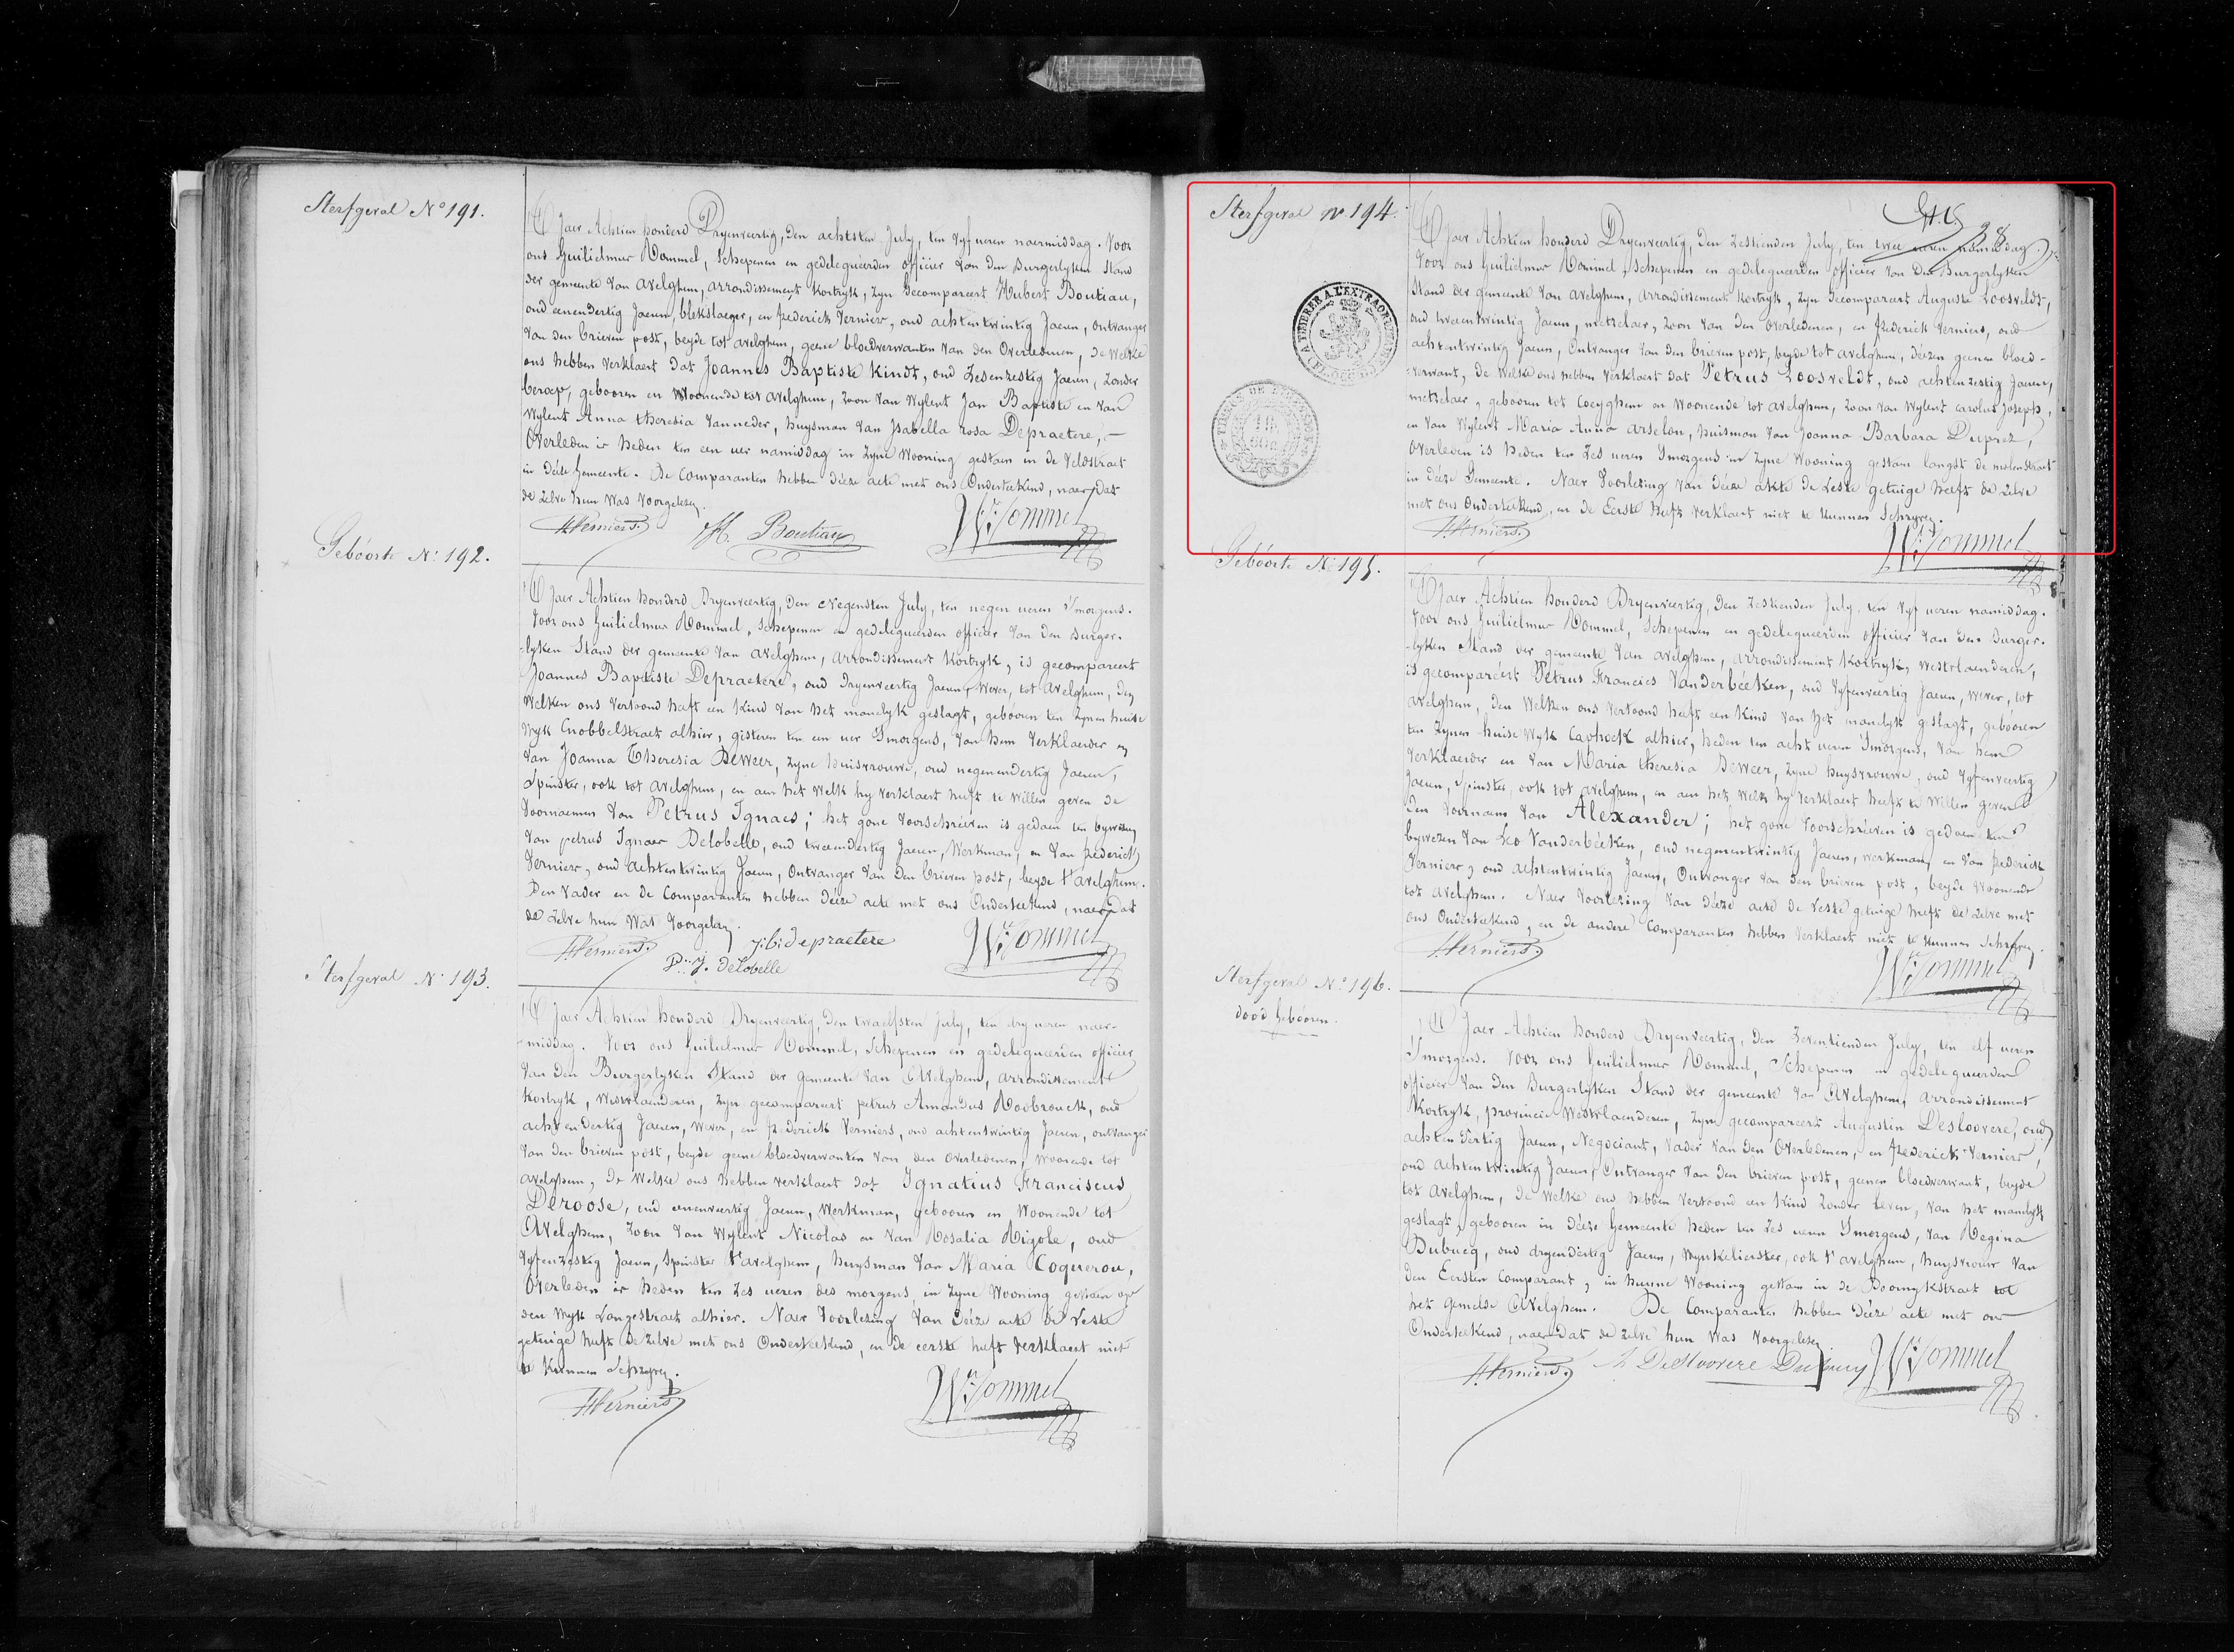 Sterfgeval N° 191.
'T Jaer Achtien honderd Dryenveertig, Den achtsten July, ten vyf ueren naermiddag. Voor
ons Guilielmus Vommel, Schepenen en gedelegueerden officier van den Burgerlyken Stand
der gemeente van avelghem, arrondissement Kortryk, zyn gecompareert Hubert Boutiau,
oud eenendertig Jaeren, blekslaeger, en frederick Verniers, oud achtentwintig Jaeren, ontvanger
van den brieven post, beyde tot avelghem, geene bloedverwanten van den Overledenen, de Welke
ons hebben verklaert dat Joannes Baptiste Kindt, oud Zesenzestig Jaeren, Zonder
beroep, gebooren en Woonende tot avelghem, Zoon van Wylent Jan Baptiste en van
Wylent Anna theresia Vanneder, huysman van Isabella rosa Depraetere, —
Overleden is heden ten een uer namiddag in Zyne Wooning gestaen in de Veldstraet
in déeze Gemeente. De Comparanten hebben déeze acte met ons Onderteekend, naer dat
de zelve hun Was Voorgelezen.
F. Verniers. H. Boutiau Wm Vommel
Gebóorte N° 192.
'T Jaer Achtien honderd Dryenveertig, Den Negensten July, ten negen ueren S'morgens.
Voor ons Guilielmus Vommel, Schepenen en gedelegueerden officier van den Burger-
-lyken Stand der gemeente van avelghem, arrondissement Kortryk, is gecompareert
Joannes Baptiste Depraetere, oud Dryenveertig Jaeren, Wever, tot avelghem, Den
Welken ons vertoond heeft een Kind van het manelyk geslagt, gebóoren ten Zynen huise
Wyk Cnobbelstraet alhier, gisteren ten een uer S'morgens, van hem Verklaerder en
van Joanna Theresia DeWeer, Zyne huisvrouwe, oud negenendertig Jaeren,
Spinster, ook tot avelghem, en aen het welk hy verklaert heeft te Willen geven de
Voornaemen van Petrus Ignaes; het gone Voorschreéven is gedaen ten bywezen
van petrus Ignaes Delobelle, oud tweeendertig Jaeren, Werkman, en van frederick
Verniers, oud achtentwintig Jaeren, Ontvanger van den brieven post, beyde t'avelghem.
Den Vader en de Comparanten hebben déeze acte met ons Onderteekend, naer dat
de zelve hun Was Voorgelezen.
F. Verniers. J: b: depraetere Wm Vommel
P. J. deLobelle
Sterfgeval N° 193.
'T Jaer Achtien honderd Dryenveertig, Den twaelfsten July, ten dry ueren naer-
-middag. Voor ons Guilielmus Vommel, Schepenen en gedelegueerden officier
van den Burgerlyken Stand der gemeente van Avelghem, arrondissement
Kortryk, Westvlaenderen, zyn gecompareert petrus Amandus Roobrouck, oud
achtendertig Jaeren, Wever, en frederick Verniers, oud achtentwintig Jaeren, ontvanger
van den brieven post, beyde geene bloedverwanten van den overledenen, Woonende tot
avelghem, De Welke ons hebben verklaert dat Ignatius Franciscus
Deroose, oud eenenveertig Jaeren, Werkman, gebooren en Woonende tot
Avelghem, Zoon van Wylent Nicolas en van Rosalia Rigole, oud
vyfenzestig Jaeren, Spinster t'avelghem, huysman van Maria Coquerou,
Overleden is heden ten Zes ueren des morgens, in Zyne Wooning gestaen op
den Wyk Langestraet alhier. Naer Voorlezing van déeze acte de Leste
getuige heeft de Zelve met ons Onderteekend, en de eerste heeft verklaert niet
te Kunnen Schryven.
F. Verniers Wm Vommel
Sterfgeval N° 194.
38
'T Jaer Achtien honderd Dryenveertig, Den Zestienden July, ten twee ueren namiddag.
Voor ons Guilielmus Vommel, Schepenen en gedelegueerden officier van Den Burgerlyken
Stand der gemeente van avelghem, arrondissement Kortryk, Zyn Gecompareert Auguste Loosveldt,
oud tweeentwintig Jaeren, metzelaer, Zoon van den Overledenen, en frederick Verniers, oud
achtentwintig Jaeren, Ontvanger van den brieven post, beyde tot avelghem, déezen geenen bloed-
-verwant, de Welke ons hebben verklaert dat Petrus Loosveldt, oud achtenzestig Jaeren,
metzelaer, gebooren tot Coeyghem en Woonende tot avelghem, Zoon van Wylent Carolus Joseph,
en van Wylent Maria Anna arselon, huisman van Joanna Barbara Duprez,
Overleden is heden ten Zes ueren S'morgens in Zyne Wooning gestaen langst de molenstraet
in déeze Gemeente. Naer Voorlezing van déeze akte de Leste getuige heeft de zelve
met ons Onderteekend, en de Eerste heeft verklaert niet te Kunnen Schryven.
F. Verniers. Wm Vommel
Gebóorte N° 195.
'T Jaer Achtien honderd Dryenveertig, Den Zestienden July, ten Vyf ueren namiddag.
Voor ons Guilielmus Vommel, Schepenen en gedelegueerden officier van den Burger-
-lyken Stand der gemeente van avelghem, arrondissement Kortryk, Westvlaenderen,
is gecomparéert Petrus Francies Vanderbéeken, oud Vyfenveertig Jaeren, Wever, tot
avelghem, Den Welken ons vertoond heeft een Kind van het manelyk geslagt, gebóoren
ten Zynen huise Wyk Caphoek alhier, heden ten acht ueren S'morgens, van hem
Verklaerder en van Maria theresia DeWeer, Zyne huysvrouwe, oud Vyfenveertig
Jaeren, Spinster, ook tot avelghem, en aen het Welk hy verklaert heeft te Willen geven
den Voornaem van Alexander; het gone Voorschréeven is gedaen ten
bywezen van Leo Vanderbéeken, oud negenentwintig Jaeren, werkman, en van frederick
Verniers, oud achtentwintig Jaeren, Ontvanger van den brieven post, beyde Woonende
tot avelghem. Naer Voorlezing van déeze acte de Leste getuige heeft de zelve met
ons Onderteekend, en de andere Comparanten hebben verklaert niet te Kunnen Schryven.
F. Verniers. Wm Vommel
Sterfgeval N° 196.
dood gebóoren.
'T Jaer Achtien honderd Dryenveertig, Den Zeventienden July, ten elf ueren
S'morgens. Voor ons Guilielmus Vommel, Schepenen en gedelegueerden
officier van den Burgerlyken Stand der gemeente van Avelghem, arrondissement
Kortryk, provincie Westvlaenderen, zyne gecompareert Augustin Desloovere, oud
achtendertig Jaeren, Negociant, Vader van den Overledenen, en frederick Verniers,
oud achtentwintig Jaeren, Ontvanger van den brieven post, geenen bloedverwant, beyde
tot avelghem, de Welke ons hebben vertoond een Kind Zonder Leven, van het manelyk
geslagt, gebooren in déeze Gemeente heden ten Zes ueren S'morgens, van Regina
Dubucq, oud dryendertig Jaeren, Wynkelierster, ook t'avelghem, huysvrouw van
den Eersten Comparant, in hunne Wooning gestaen in de Doornykstraet tot
het gemelde Avelghem. De Comparanten hebben déeze acte met ons
Onderteekend, naer dat de zelve hun Was Voorgelezen.
F. Verniers. A DeSloovere Dubucq Wm Vommel